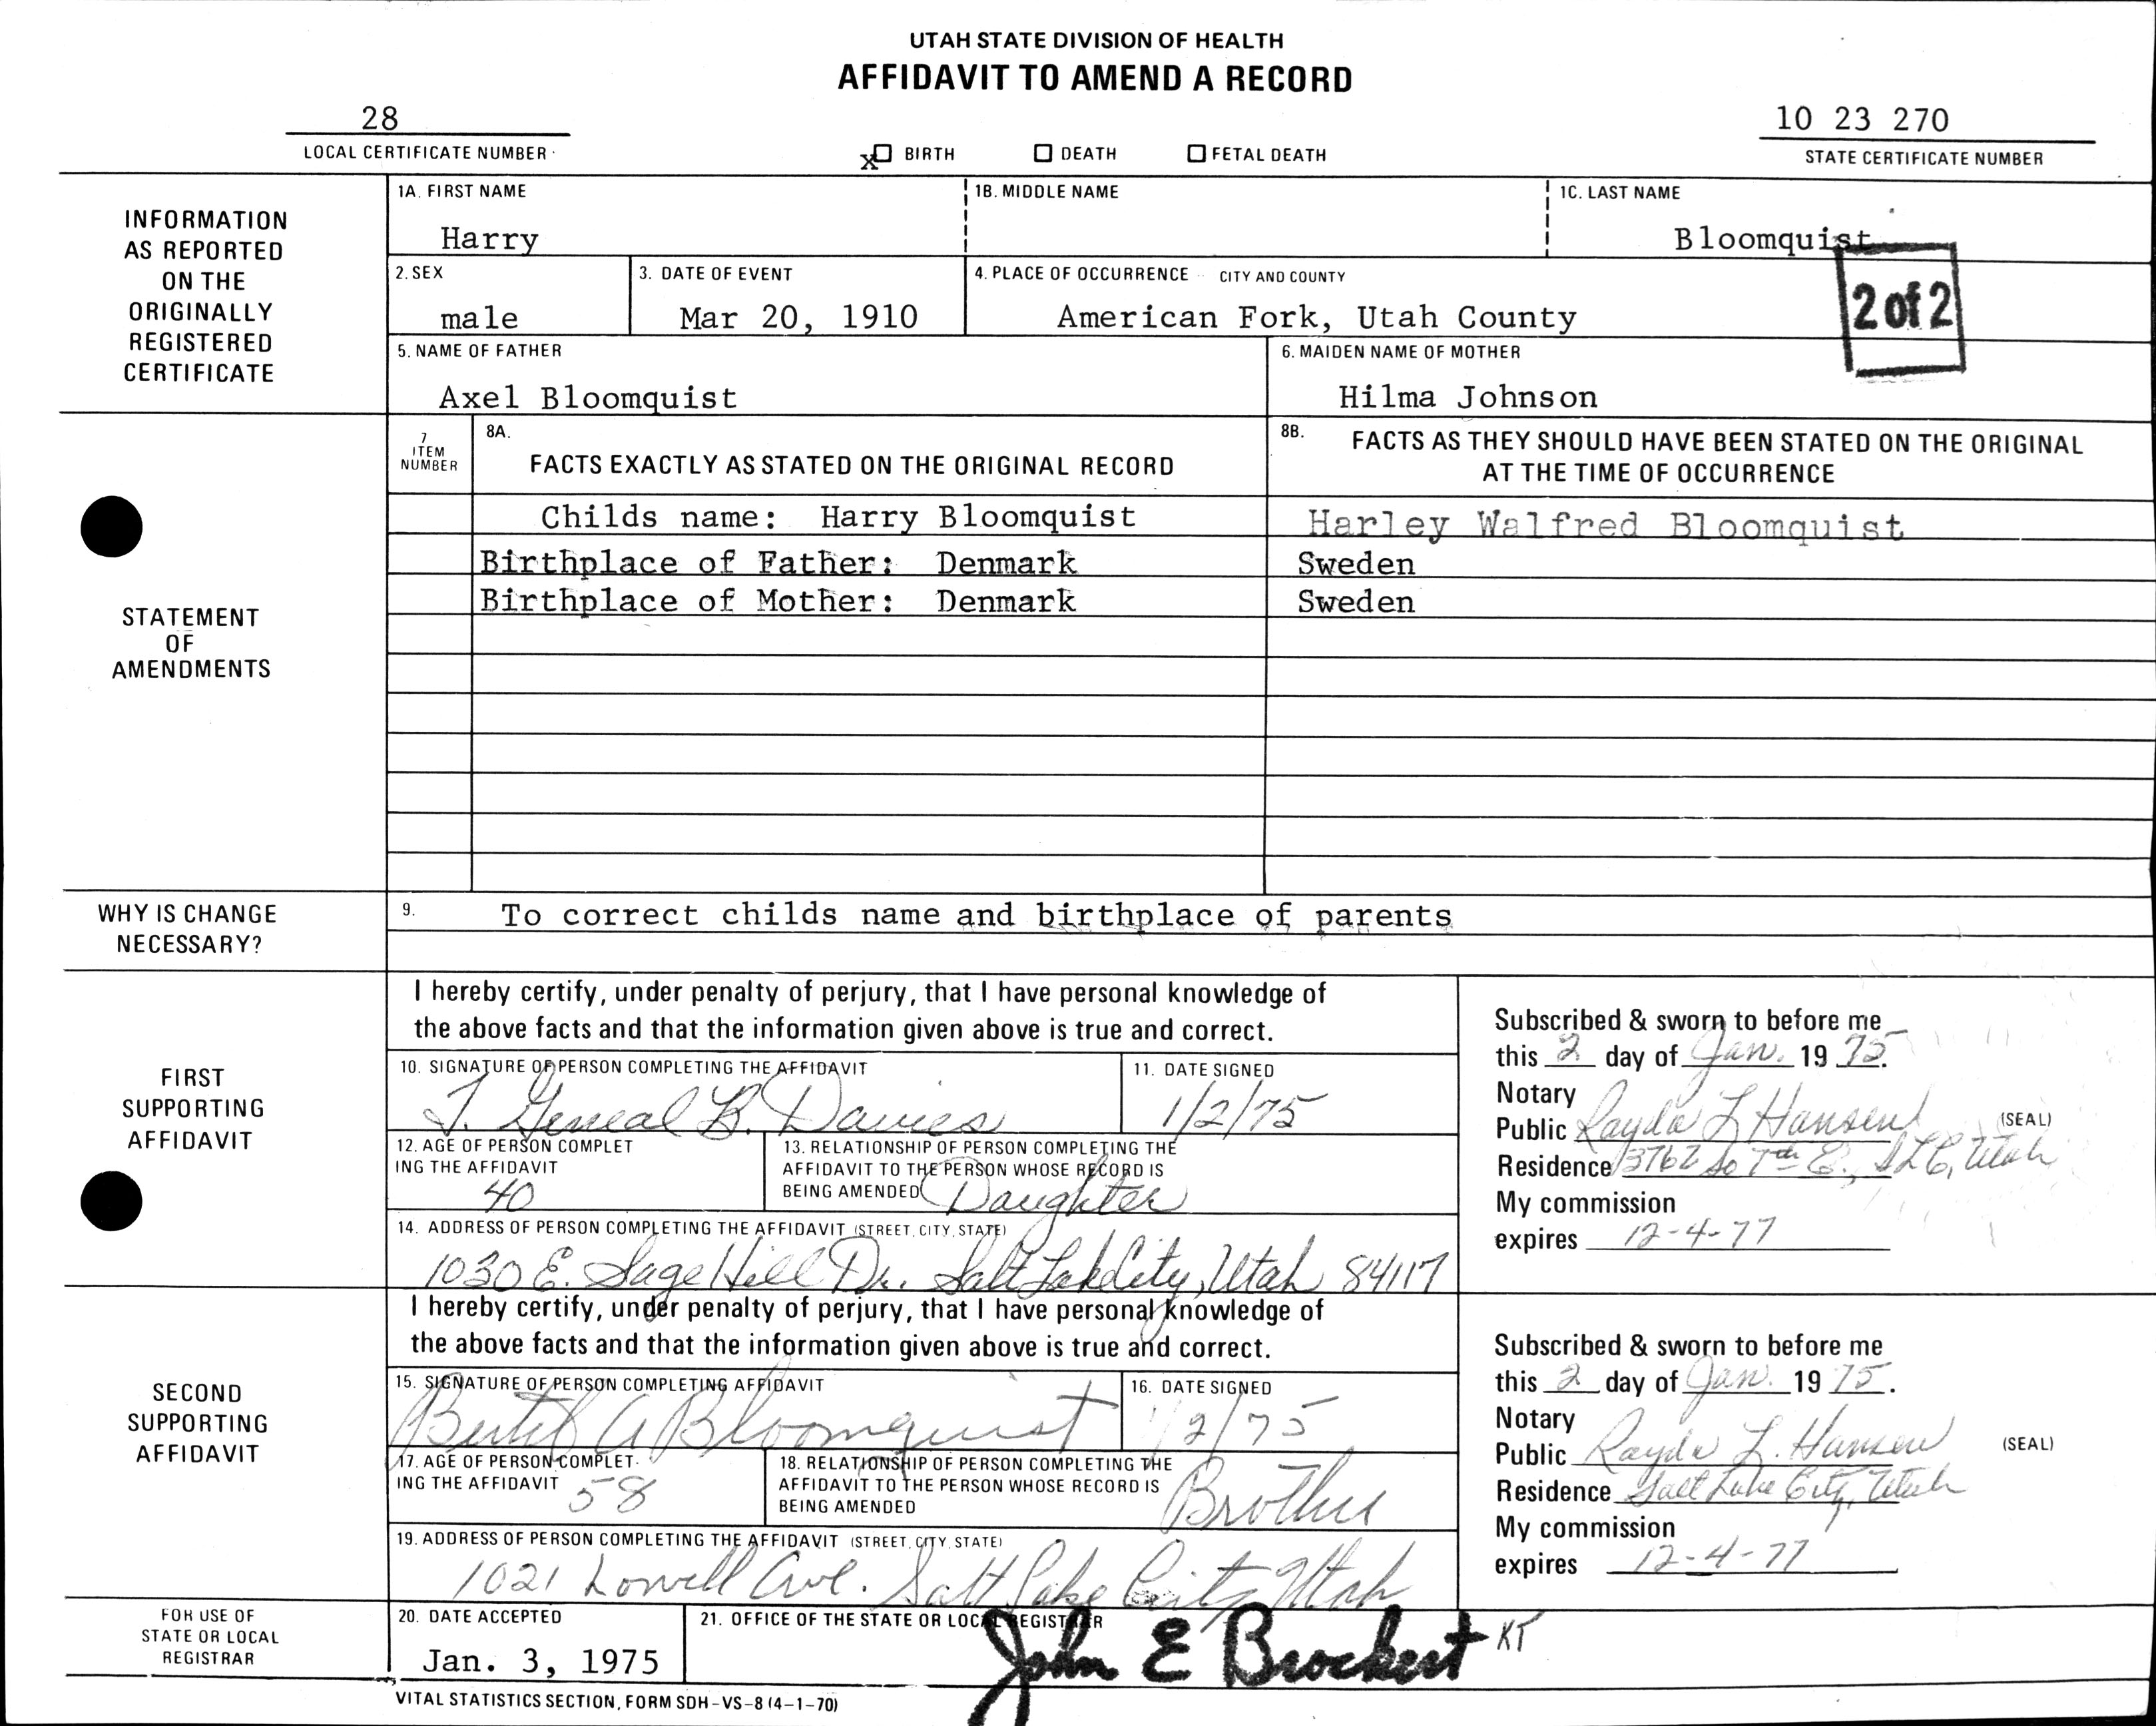 UTAH STATE DIVISION OF HEALTH
AFFIDAVIT TO AMEND A RECORD
28
LOCAL CERTIFICATE NUMBER
x☐ BIRTH ☐ DEATH ☐ FETAL DEATH
10 23 270
STATE CERTIFICATE NUMBER
INFORMATION
AS REPORTED
ON THE
ORIGINALLY
REGISTERED
CERTIFICATE
1A. FIRST NAME 1B. MIDDLE NAME 1C. LAST NAME
Harry Bloomquist
2 of 2
2. SEX 3. DATE OF EVENT 4. PLACE OF OCCURRENCE CITY AND COUNTY
male Mar 20, 1910 American Fork, Utah County
5. NAME OF FATHER 6. MAIDEN NAME OF MOTHER
Axel Bloomquist Hilma Johnson
STATEMENT
OF
AMENDMENTS
7
ITEM
NUMBER
8A.
FACTS EXACTLY AS STATED ON THE ORIGINAL RECORD
8B. FACTS AS THEY SHOULD HAVE BEEN STATED ON THE ORIGINAL
AT THE TIME OF OCCURRENCE
Childs name: Harry Bloomquist Harley Walfred Bloomquist
Birthplace of Father: Denmark Sweden
Birthplace of Mother: Denmark Sweden
WHY IS CHANGE
NECESSARY?
9. To correct childs name and birthplace of parents
FIRST
SUPPORTING
AFFIDAVIT
I hereby certify, under penalty of perjury, that I have personal knowledge of
the above facts and that the information given above is true and correct.
10. SIGNATURE OF PERSON COMPLETING THE AFFIDAVIT 11. DATE SIGNED
J. Geneal B. Davies 1/2/75
12. AGE OF PERSON COMPLET
ING THE AFFIDAVIT
40
13. RELATIONSHIP OF PERSON COMPLETING THE
AFFIDAVIT TO THE PERSON WHOSE RECORD IS
BEING AMENDED Daughter
14. ADDRESS OF PERSON COMPLETING THE AFFIDAVIT (STREET, CITY, STATE)
1030 E. Sage Hill Dr. Salt Lake City, Utah 84117
Subscribed & sworn to before me
this 2 day of Jan. 19 75.
Notary
Public Rayda L Hansen (SEAL)
Residence 3762 So 7th E., SLC, Utah
My commission
expires 12-4-77
SECOND
SUPPORTING
AFFIDAVIT
I hereby certify, under penalty of perjury, that I have personal knowledge of
the above facts and that the information given above is true and correct.
15. SIGNATURE OF PERSON COMPLETING AFFIDAVIT 16. DATE SIGNED
Bertil A Bloomquist 1/2/75
17. AGE OF PERSON COMPLET-
ING THE AFFIDAVIT 58
18. RELATIONSHIP OF PERSON COMPLETING THE
AFFIDAVIT TO THE PERSON WHOSE RECORD IS
BEING AMENDED Brother
19. ADDRESS OF PERSON COMPLETING THE AFFIDAVIT (STREET, CITY, STATE)
1021 Lowell Ave. Salt Lake City Utah
Subscribed & sworn to before me
this 2 day of Jan. 19 75.
Notary
Public Rayda L. Hansen (SEAL)
Residence Salt Lake City, Utah
My commission
expires 12-4-77
FOR USE OF
STATE OR LOCAL
REGISTRAR
20. DATE ACCEPTED 21. OFFICE OF THE STATE OR LOCAL REGISTRAR
Jan. 3, 1975 John E Brockert KT
VITAL STATISTICS SECTION, FORM SDH-VS-8 (4-1-70)